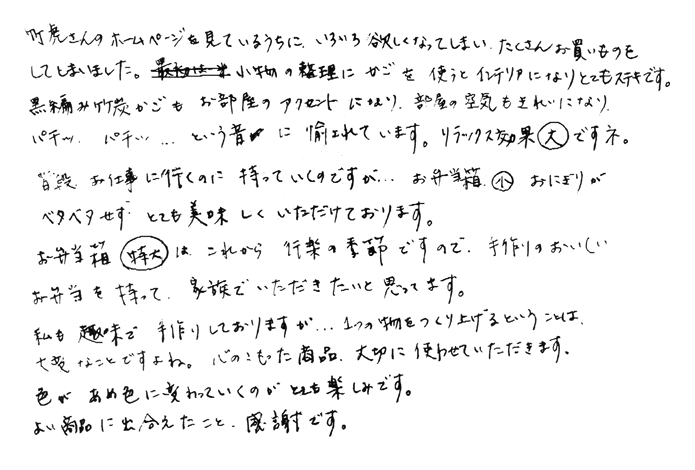 竹虎さんのホームページを見ているうちに、いろいろ欲しくなってしまい、たくさんお買いものを
してしまいました。小物の整理にかごを使うとインテリアになりとてもステキです。
黒編み竹炭かごもお部屋のアクセントになり、部屋の空気もきれいになり、
パチッ、パチッ…という音に癒されています。リラックス効果大ですネ。
普段、お仕事に行くのに持っていくのですが…お弁当箱小おにぎりが
ベタベタせずとても美味しくいただけております。
お弁当箱特大は、これから行楽の季節ですので、手作りのおいしい
お弁当を持って、家族でいただきたいと思ってます。
私も趣味で手作りしておりますが…1つの物をつくり上げるということは、
大変なことですよね。心のこもった商品、大切に使わせていただきます。
色があめ色に変わっていくのがとても楽しみです。
よい商品に出会えたこと、感謝です。